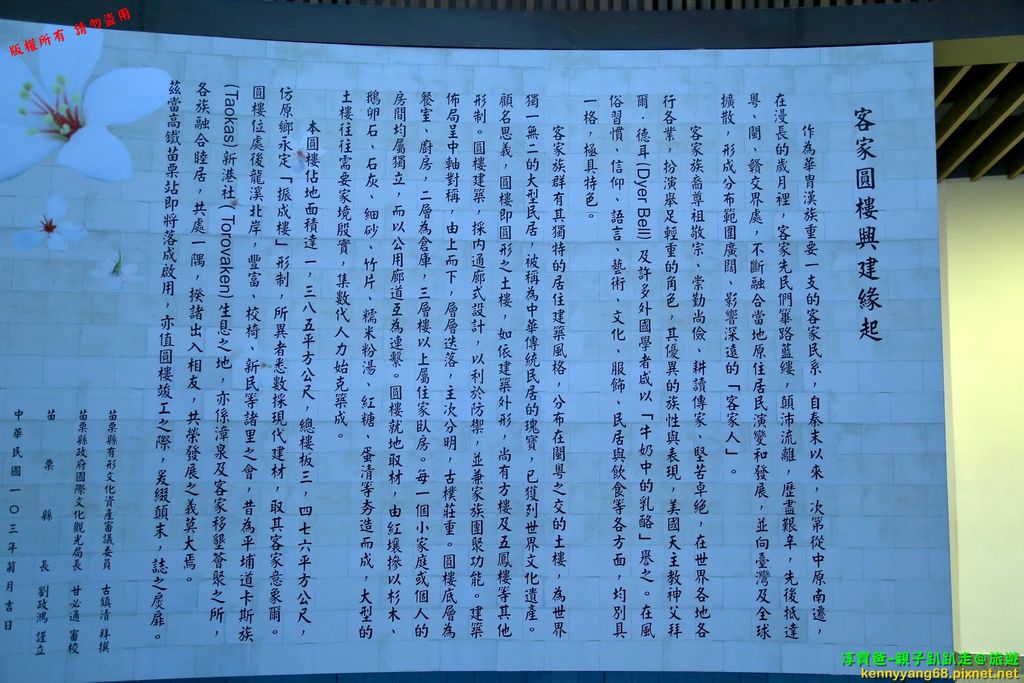 版權所有 請勿盜用
客家圓樓興建緣起
作為華胄漢族重要一支的客家民系，自秦末以來，次第從中原南遷，
在漫長的歲月裡，客家先民們篳路藍縷，顛沛流離，歷盡艱辛，先後抵達
粵、閩、贛交界處，不斷融合當地原住居民演變和發展，並向臺灣及全球
擴散，形成分布範圍廣闊、影響深遠的「客家人」。
客家族裔尊祖敬宗、崇勤尚儉、耕讀傳家、堅苦卓絕，在世界各地各
行各業，扮演舉足輕重的角色，其優異的族性與表現，美國天主教神父拜
爾．德耳(Dyer Bell) 及許多外國學者咸以「牛奶中的乳酪」譽之。在風
俗習慣、信仰、語言、藝術、文化、服飾、民居與飲食等各方面，均別具
一格，極具特色。
客家族群有其獨特的居住建築風格，分布在閩粵之交的土樓，為世界
獨一無二的大型民居，被稱為中華傳統民居的瑰寶，已獲列世界文化遺產。
顧名思義，圓樓即圓形之土樓，如依建築外形，尚有方樓及五鳳樓等其他
形制。圓樓建築，採內通廊式設計，以利於防禦，並兼家族團聚功能。建築
佈局呈中軸對稱，由上而下，層層迭落，主次分明，古樸莊重。圓樓底層為
餐室、廚房，二層為倉庫，三層樓以上屬住家臥房。每一個小家庭或個人的
房間均屬獨立，而以公用廊道互為連繫。圓樓就地取材，由紅壤摻以杉木、
鵝卵石、石灰、細砂、竹片、糯米粉湯、紅糖、蛋清等夯造而成，大型的
土樓往往需要家境殷實，集數代人力始克築成。
本圓樓佔地面積達一，三八五平方公尺，總樓板三，四七六平方公尺，
仿原鄉永定「振成樓」形制，所異者悉數採現代建材，取其客家意象爾。
圓樓位處後龍溪北岸，豐富、校椅、新民等諸里之會，昔為平埔道卡斯族
(Taokas)新港社(Torovaken)生息之地，亦係漳泉及客家移墾薈聚之所，
各族融合睦居，共處一隅，揆諸出入相友，共榮發展之義莫大焉。
茲當高鐵苗栗站即將落成啟用，亦值圓樓竣工之際，爰綴顛末，誌之扆扉。
苗栗縣有形文化資產審議委員 古鎮清 拜撰
苗栗縣政府國際文化觀光局長 甘必通 審校
苗栗縣長 劉政鴻 謹立
中華民國一〇三年菊月吉日
淳寶爸-親子趴趴走@旅遊
kennyyang68.pixnet.net